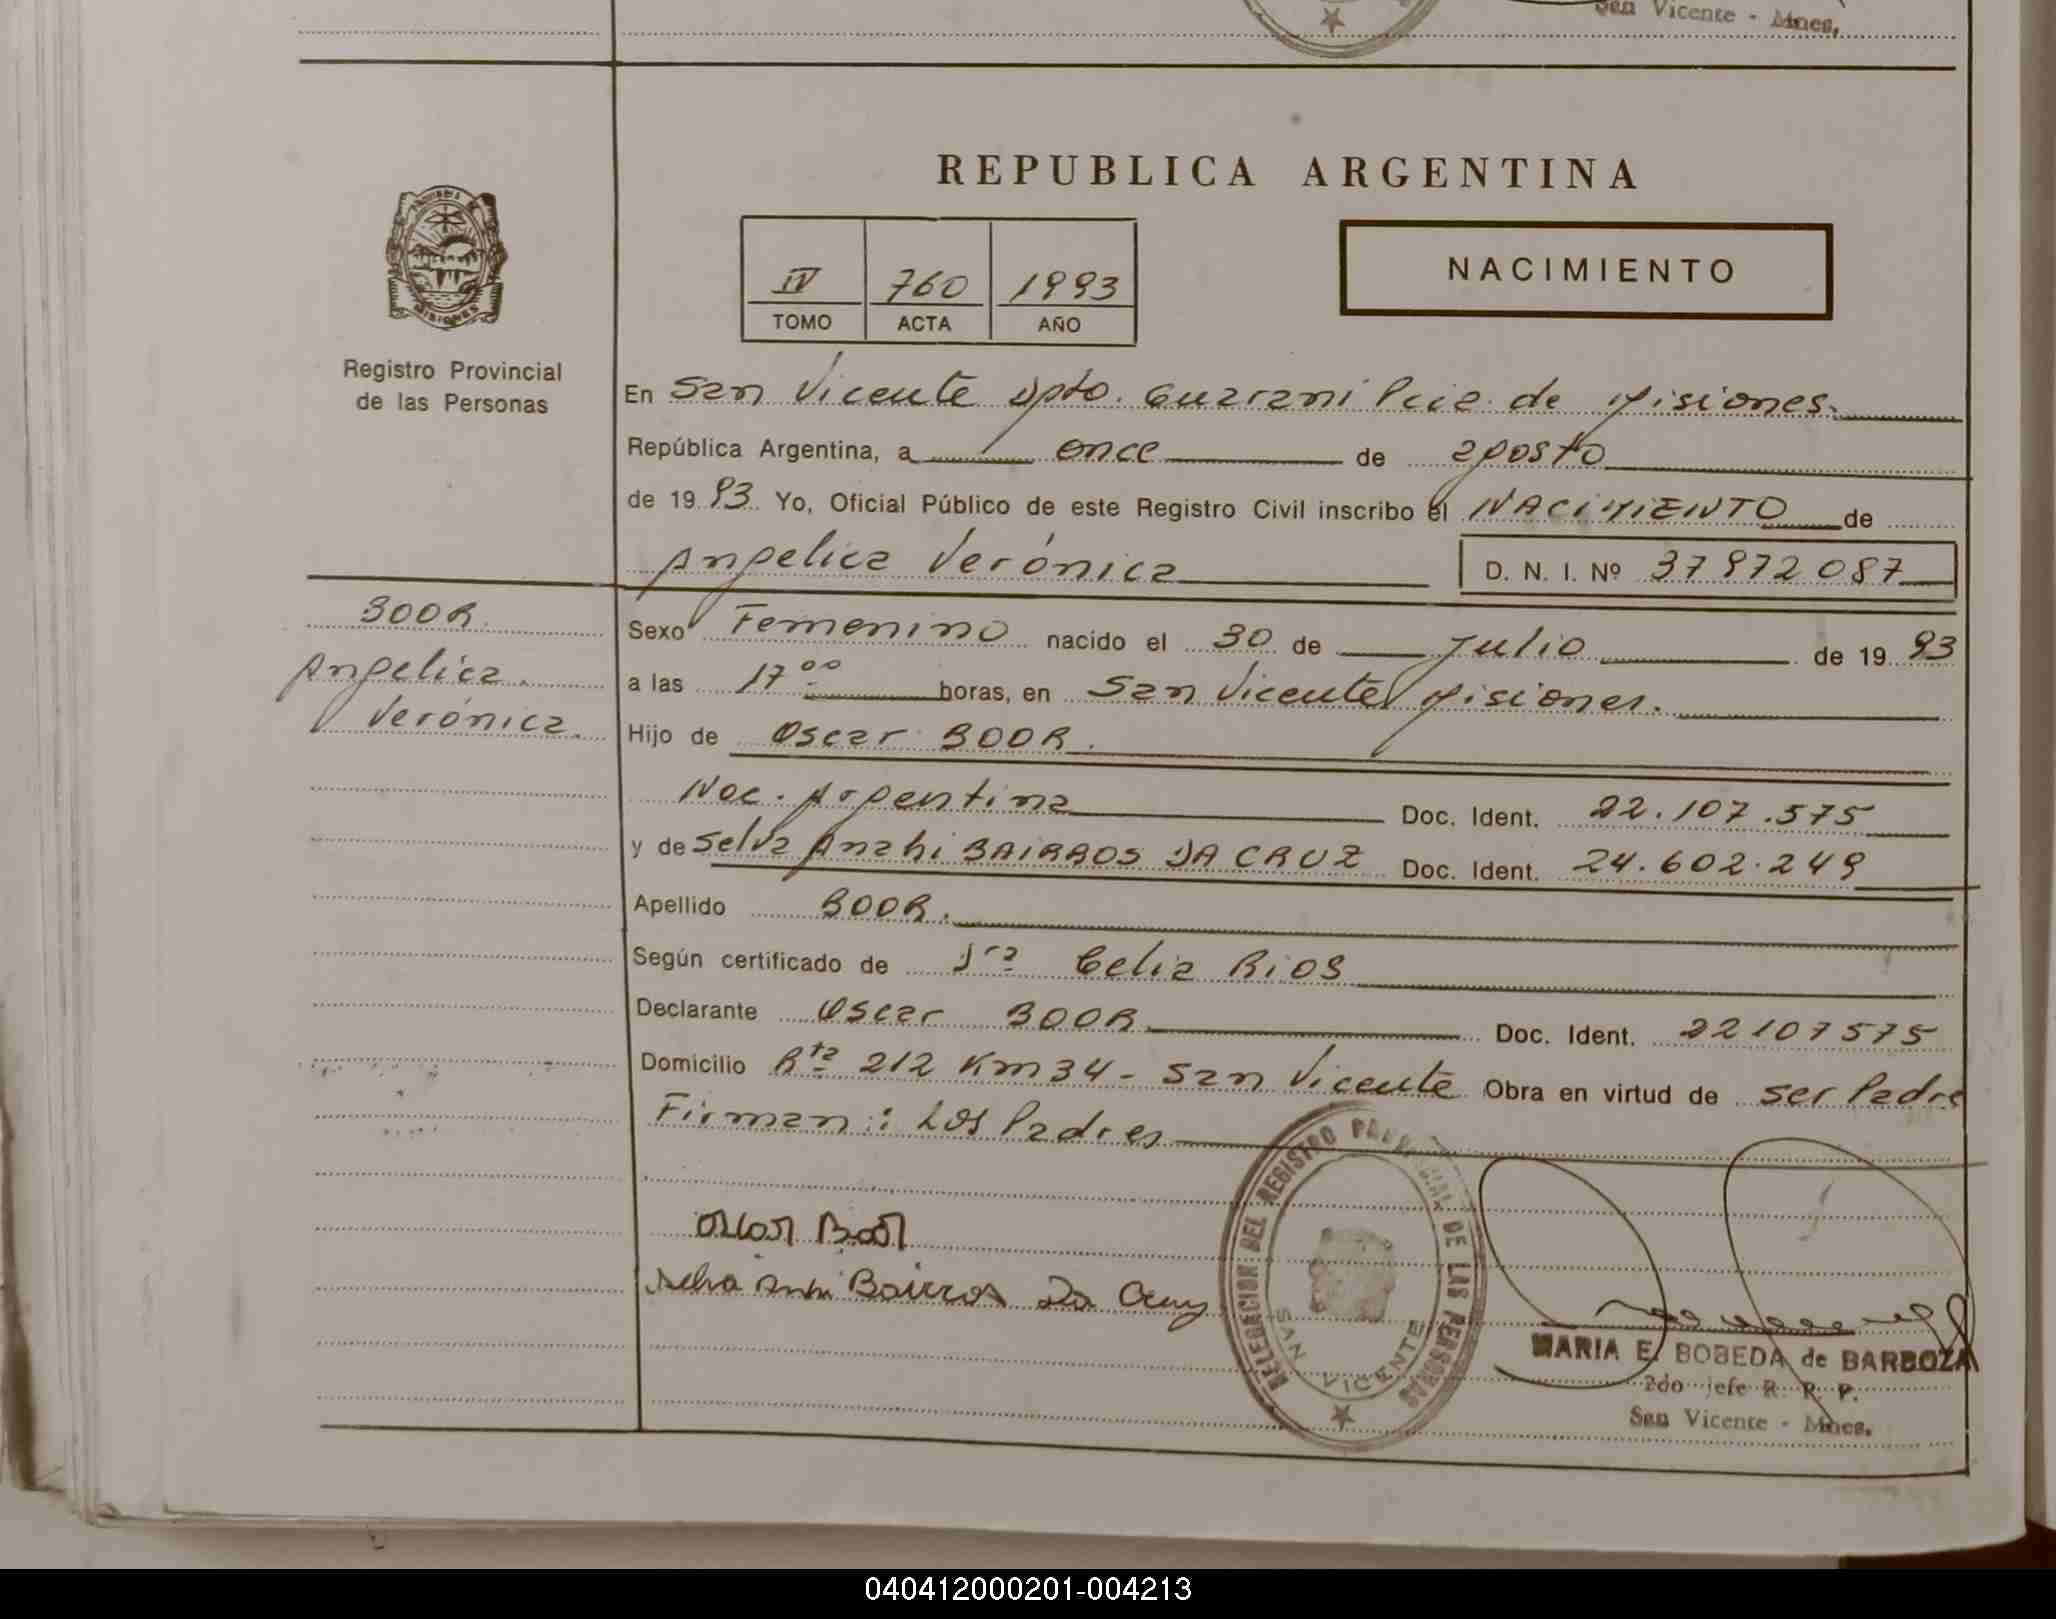 San Vicente - Mnes.
REPUBLICA ARGENTINA
IV 760 1993
TOMO ACTA AÑO
NACIMIENTO
MISIONES
Registro Provincial
de las Personas
En San Vicente Dpto. Guaraní Pcia. de Misiones.
República Argentina, a once de agosto
de 1993. Yo, Oficial Público de este Registro Civil inscribo el NACIMIENTO de
Angelica Verónica D. N. I. Nº 37972087
BOOR.
Angelica
Verónica.
Sexo Femenino nacido el 30 de Julio de 1993
a las 17 oo horas, en San Vicente Misiones.
Hijo de Oscar BOOR.
Nac. Argentina Doc. Ident. 22.107.575
y de Selva Anahi BAIRROS DA CRUZ Doc. Ident. 24.602.249
Apellido BOOR.
Según certificado de Dra Celia Rios
Declarante Oscar BOOR Doc. Ident. 22107575
Domicilio Rta 212 Km 34 - San Vicente Obra en virtud de ser Padre
Firman: Los Padres
Oscar Boor
Selva Anhi Bairros Da Cruz
DELEGACION DEL REGISTRO PROVINCIAL DE LAS PERSONAS
SAN VICENTE
MARIA E. BOBEDA de BARBOZA
2do jefe R. P. P.
San Vicente - Mnes.
040412000201-004213